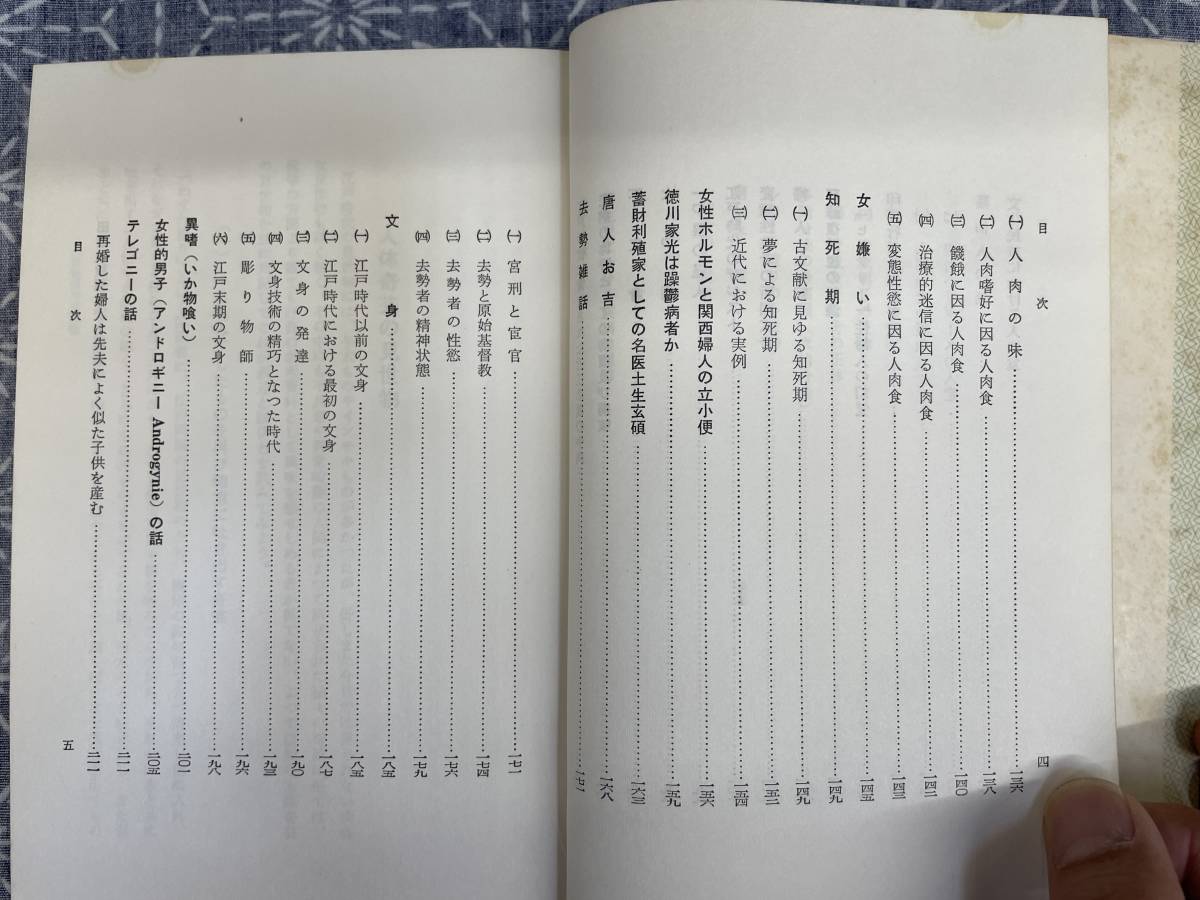 目次
㈠ 人肉の味……一三六
㈡ 人肉嗜好に因る人肉食……一三八
㈢ 饑餓に因る人肉食……一四〇
㈣ 治療的迷信に因る人肉食……一四二
㈤ 変態性慾に因る人肉食……一四三
女嫌い……一四五
知死期……一四九
㈠ 古文献に見ゆる知死期……一四九
㈡ 夢による知死期……一五二
㈢ 近代における実例……一五四
女性ホルモンと関西婦人の立小便……一五六
徳川家光は躁鬱病者か……一五九
蓄財利殖家としての名医土生玄碩……一六三
唐人お吉……一六八
去勢雑話……一七一
四
㈠ 宮刑と宦官……一七一
㈡ 去勢と原始基督教……一七四
㈢ 去勢者の性慾……一七六
㈣ 去勢者の精神状態……一七九
文身……一八五
㈠ 江戸時代以前の文身……一八五
㈡ 江戸時代における最初の文身……一八七
㈢ 文身の発達……一九〇
㈣ 文身技術の精巧となつた時代……一九三
㈤ 彫り物師……一九六
㈥ 江戸末期の文身……一九八
異嗜（いか物喰い）……二〇一
女性的男子（アンドロギニー Androgynie）の話……二〇五
テレゴニーの話……二一一
再婚した婦人は先夫によく似た子供を産む……二一一
目次
五